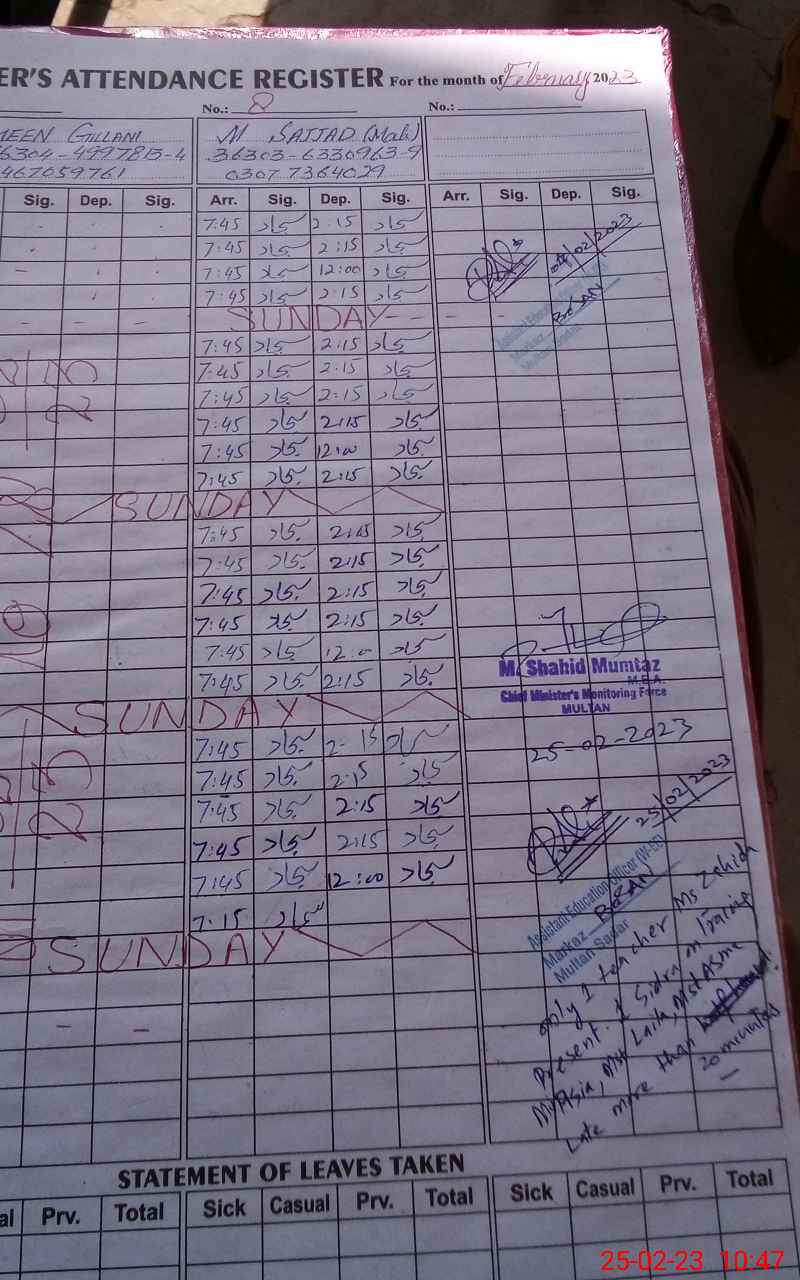 ER'S ATTENDANCE REGISTER For the month of February 2023
No.: 8 No.:
MEEN GILLANI M SAJJAD (Mali)
36304-4997815-4 36303-6330963-9
467659761 0307 7364029
Sig. Dep. Sig. Arr. Sig. Dep. Sig. Arr. Sig. Dep. Sig.
7:45 سجاد 2:15 سجاد
7:45 سجاد 2:15 سجاد
7:45 سجاد 12:00 سجاد
7:45 سجاد 2:15 سجاد
04/02/2023
Assistant Education Officer
Markaz BOSAN
Multan Saddar
SUNDAY
7:45 سجاد 2:15 سجاد
7:45 سجاد 2:15 سجاد
7:45 سجاد 2:15 سجاد
7:45 سجاد 2:15 سجاد
7:45 سجاد 12:00 سجاد
7:45 سجاد 2:15 سجاد
SUNDAY
7:45 سجاد 2:15 سجاد
7:45 سجاد 2:15 سجاد
7:45 سجاد 2:15 سجاد
7:45 سجاد 2:15 سجاد
7:45 سجاد 12:0 سجاد
7:45 سجاد 2:15 سجاد
M. Shahid Mumtaz
M.E.A.
Chief Minister's Monitoring Force
MULTAN
25-02-2023
SUNDAY
7:45 سجاد 2:15 سجاد
7:45 سجاد 2:15 سجاد
7:45 سجاد 2:15 سجاد
7:45 سجاد 2:15 سجاد
7:45 سجاد 12:00 سجاد
7:15 سجاد
SUNDAY
25/02/2023
Assistant Education Officer (W-EE)
Markaz BOSAN
Multan Sadar
only 1 teacher Ms Zahida
Present. 1 Sidra on Traning
Asia, Mst Laila, Mst Asma
Late more than
20 minutes
STATEMENT OF LEAVES TAKEN
al Prv. Total Sick Casual Prv. Total Sick Casual Prv. Total
25-02-23 10:47